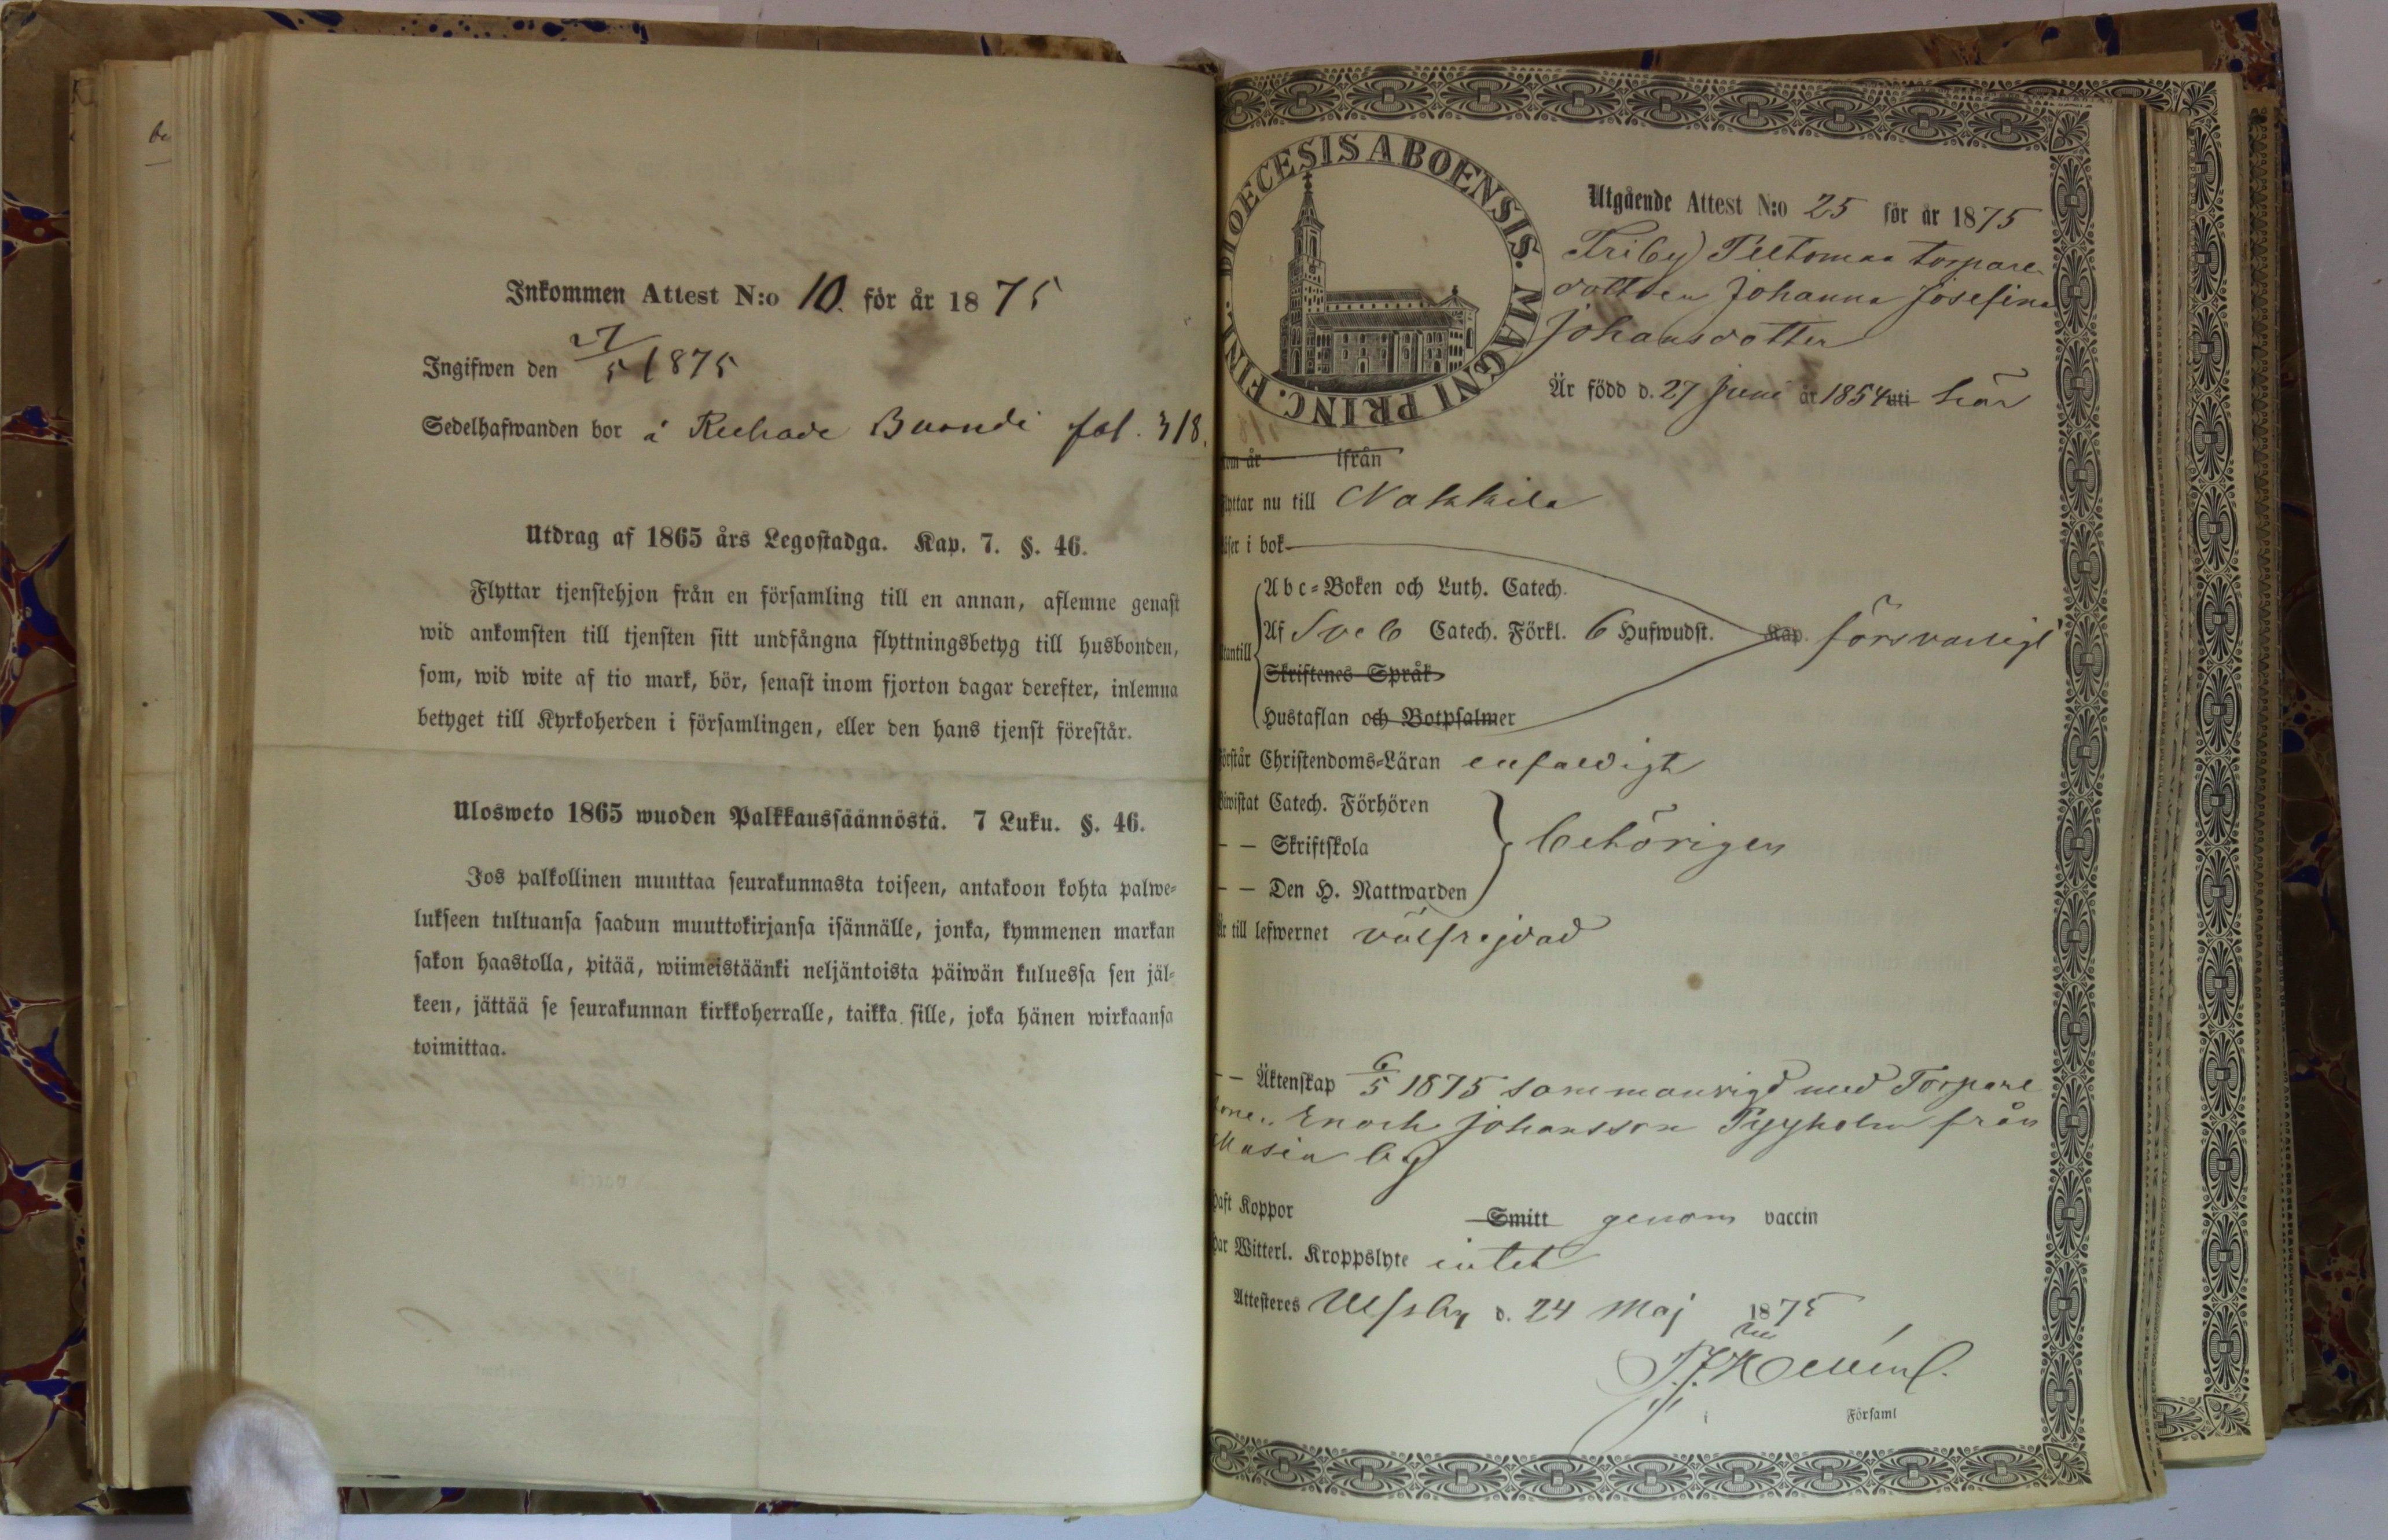 be
Inkommen Attest N:o 10. för år 1875
Ingifwen den 27/5 1875
Sedelhafwanden bor å fol. 318.
Utdrag af 1865 års Legostadga. Kap. 7. §. 46.
Flyttar tjenstehjon från en församling till en annan, aflemne genast
wid ankomsten till tjensten sitt undfångna flyttningsbetyg till husbonden,
som, wid wite af tio mark, bör, senast inom fjorton dagar derefter, inlemna
betyget till Kyrkoherden i församlingen, eller den hans tjenst förestår.
Ulosweto 1865 wuoden Palkkaussäännöstä. 7 Luku. §. 46.
Jos palkollinen muuttaa seurakunnasta toiseen, antakoon kohta palwe=
lukseen tultuansa saadun muuttokirjansa isännälle, jonka, kymmenen markan
sakon haastolla, pitää, wiimeistäänki neljäntoista päiwän kuluessa sen jäl=
keen, jättää se seurakunnan kirkkoherralle, taikka sille, joka hänen wirkaansa
toimittaa.
DIOECESIS ABOENSIS. MAGNI PRINC. FINL.
Utgående Attest N:o 25 för år 1875
Friby Peltomaa torpare
dottren Johanna Josefina
Johansdotter
Är född d. 27 Juni år 1854 uti här
om år ifrån
lyttar nu till Nakkila
äser i bok
Abc=Boken och Luth. Catech.
Af Sveb Catech. Förkl. 6 Hufwudst. Kap. försvarligt
tantill
Skriftenes Språk
Hustaflan och Botpsalmer
örstår Christendoms=Läran enfaldigt
iwistat Catech. Förhören
— — Skriftskola behörigen
— — Den H. Nattwarden
Är till lefwernet välfrejdad
— — Äktenskap 6/5 1875 sammanvigd med Torpare
sonen Enoch Johansson Pyyholm från
Masia by
haft Koppor Smitt genom vaccin
har Witterl. Kroppslyte intet
Attesteres Ulfsby d. 24 Maj 1875
i Församl